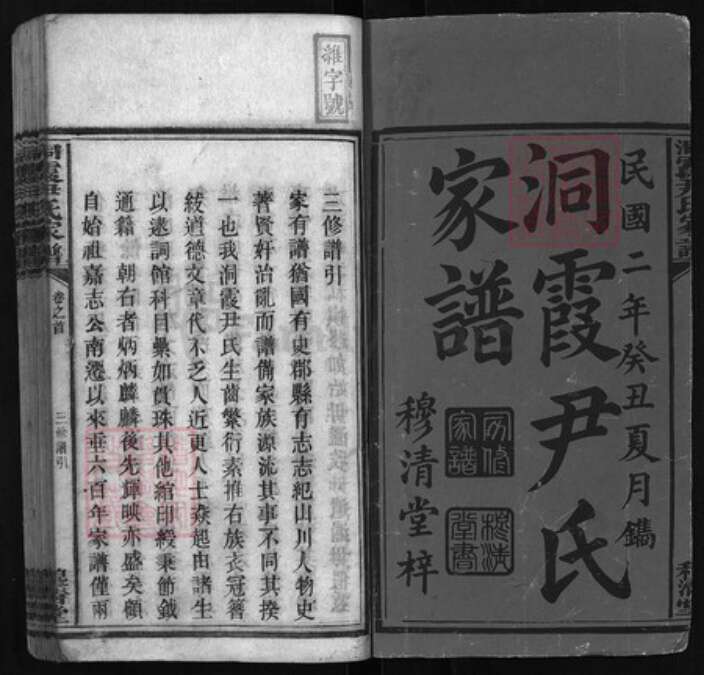 民國二年癸丑夏月鐫
洞霞尹氏
家譜
穆清堂梓
雜字號
三修譜引
家有譜猶國有史郡縣有志志紀山川人物史
著賢奸治亂而譜備家族源流其事不同其揆
一也我洞霞尹氏生齒繁衍素推右族衣冠簪
綬道德文章代不乏人近更人士焱起由諸生
以逮詞館科目纍如貫珠其他綰印綬秉節鉞
通籍 朝右者炳炳麟麟後先輝映亦盛矣顧
自始祖嘉志公南遷以來垂六百年家譜僅兩
洞霞尹氏家譜 卷之首 三修譜引